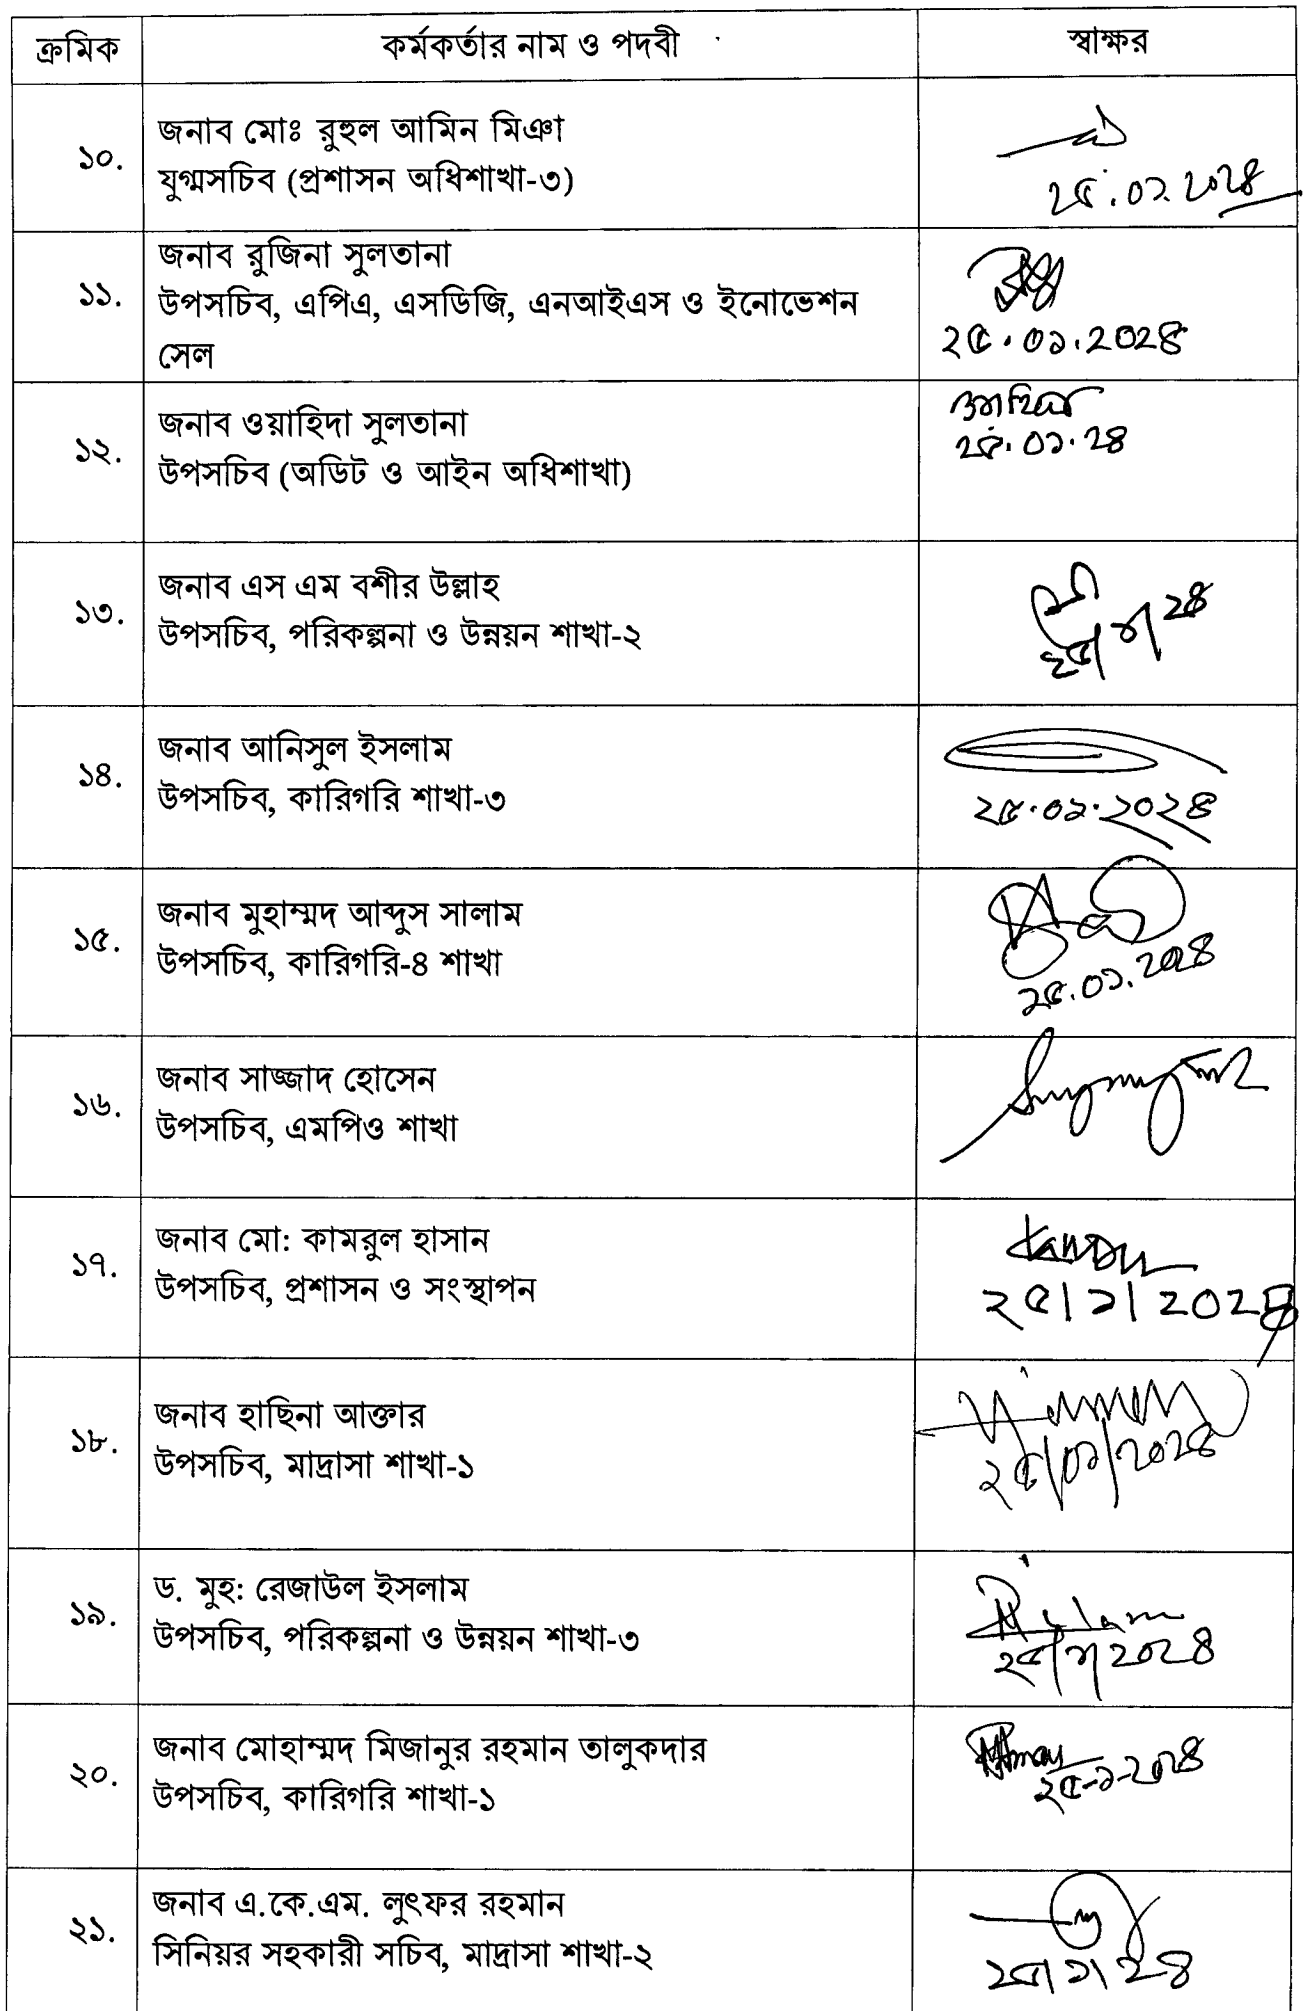 ক্রমিক কর্মকর্তার নাম ও পদবী স্বাক্ষর
১০. জনাব মোঃ রুহুল আমিন মিঞা
যুগ্মসচিব (প্রশাসন অধিশাখা-৩)
২৫.০১.২০২৪
১১. জনাব রুজিনা সুলতানা
উপসচিব, এপিএ, এসডিজি, এনআইএস ও ইনোভেশন
সেল
২৫.০১.২০২৪
১২. জনাব ওয়াহিদা সুলতানা
উপসচিব (অডিট ও আইন অধিশাখা)
২৫.০১.২৪
১৩. জনাব এস এম বশীর উল্লাহ
উপসচিব, পরিকল্পনা ও উন্নয়ন শাখা-২
২৫/১/২৪
১৪. জনাব আনিসুল ইসলাম
উপসচিব, কারিগরি শাখা-৩
২৫.০১.২০২৪
১৫. জনাব মুহাম্মদ আব্দুস সালাম
উপসচিব, কারিগরি-৪ শাখা
২৫.০১.২০২৪
১৬. জনাব সাজ্জাদ হোসেন
উপসচিব, এমপিও শাখা
১৭. জনাব মো: কামরুল হাসান
উপসচিব, প্রশাসন ও সংস্থাপন
২৫/১/২০২৪
১৮. জনাব হাছিনা আক্তার
উপসচিব, মাদ্রাসা শাখা-১
২৫/০১/২০২৪
১৯. ড. মুহ: রেজাউল ইসলাম
উপসচিব, পরিকল্পনা ও উন্নয়ন শাখা-৩
২৫/১/২০২৪
২০. জনাব মোহাম্মদ মিজানুর রহমান তালুকদার
উপসচিব, কারিগরি শাখা-১
২৫-১-২০২৪
২১. জনাব এ.কে.এম. লুৎফর রহমান
সিনিয়র সহকারী সচিব, মাদ্রাসা শাখা-২
২৫/১/২৪